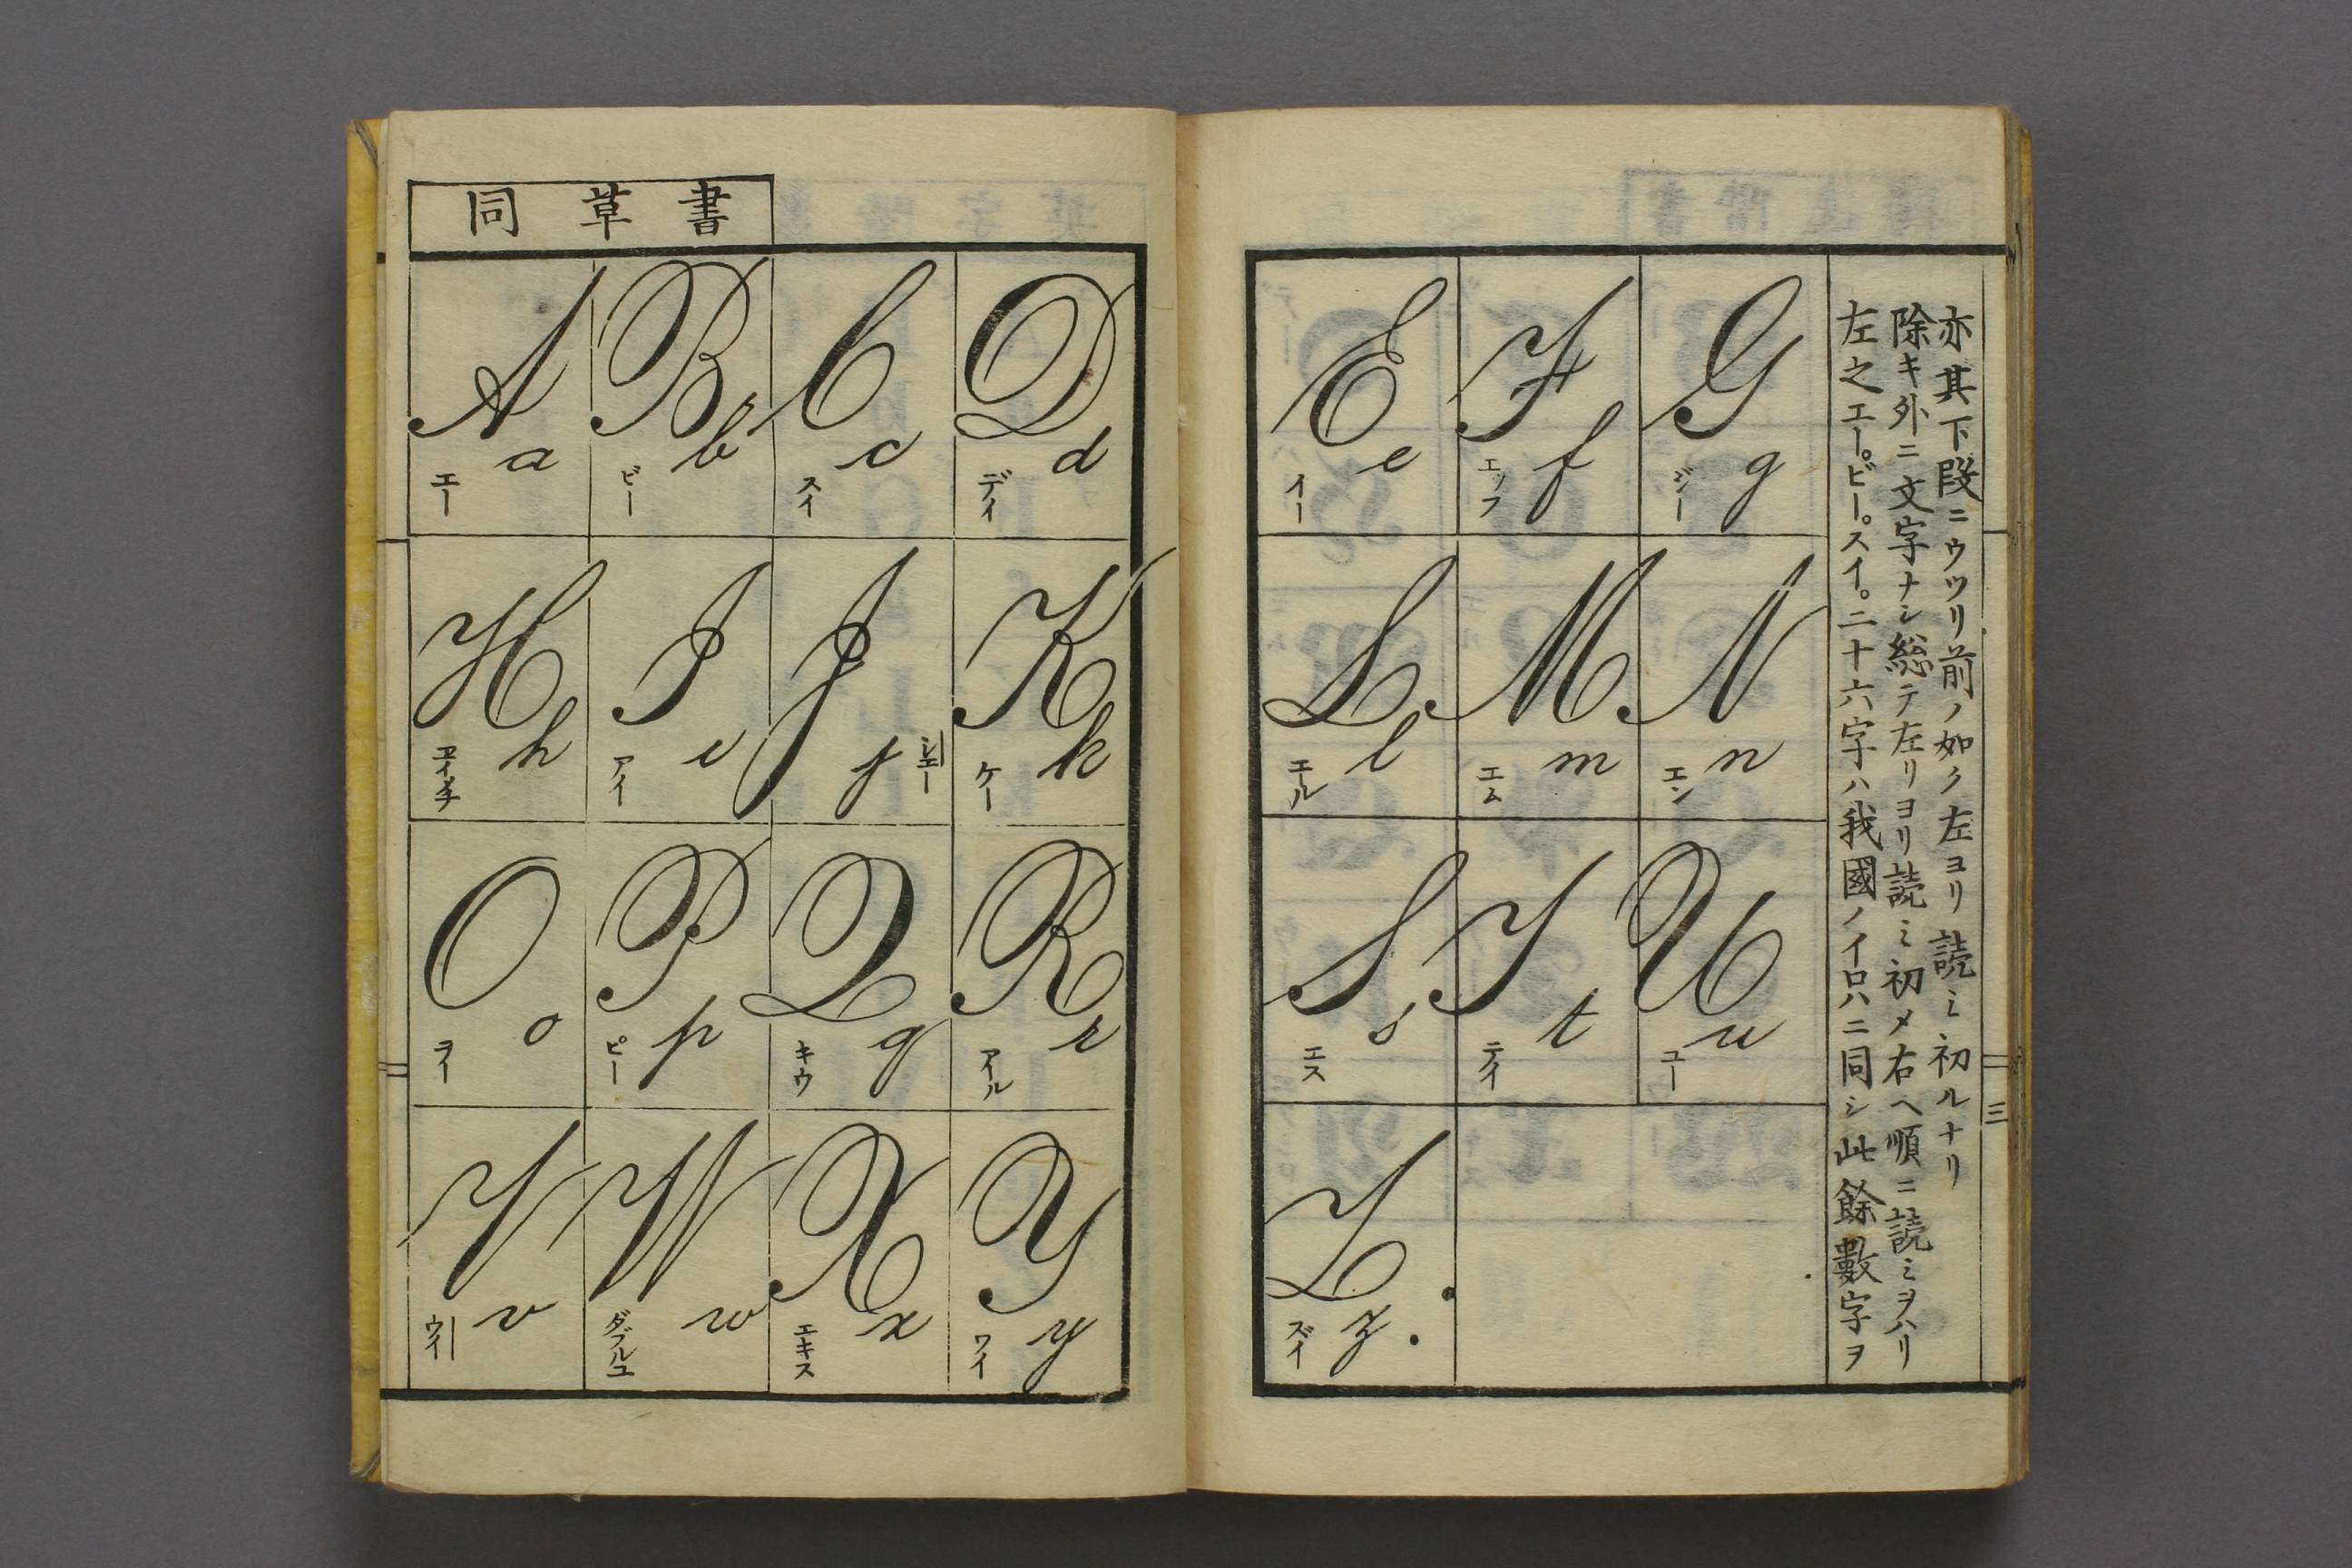 同草書
A a エー
B b ビー
C c スイ
D d デイ
E e イー
F f エッフ
G g ジー
H h エイチ
I i アイ
J j ジエー
K k ケー
L l エール
M m エム
N n エン
O o ヲー
P p ピー
Q q キウ
R r アール
S s エス
T t テイ
U u ユー
V v ウイー
W w ダブルユ
X x エキス
Y y ワイ
Z z. ズイ
亦其下段ニウツリ前ノ如ク左ヨリ読ミ初ルナリ
除キ外ニ文字ナシ総テ左リヨリ読ミ初メ右ヘ順ニ読ミヲハリ
左之エー。ビー。スイ。二十六字ハ我國ノイロハニ同シ此餘數字ヲ
三